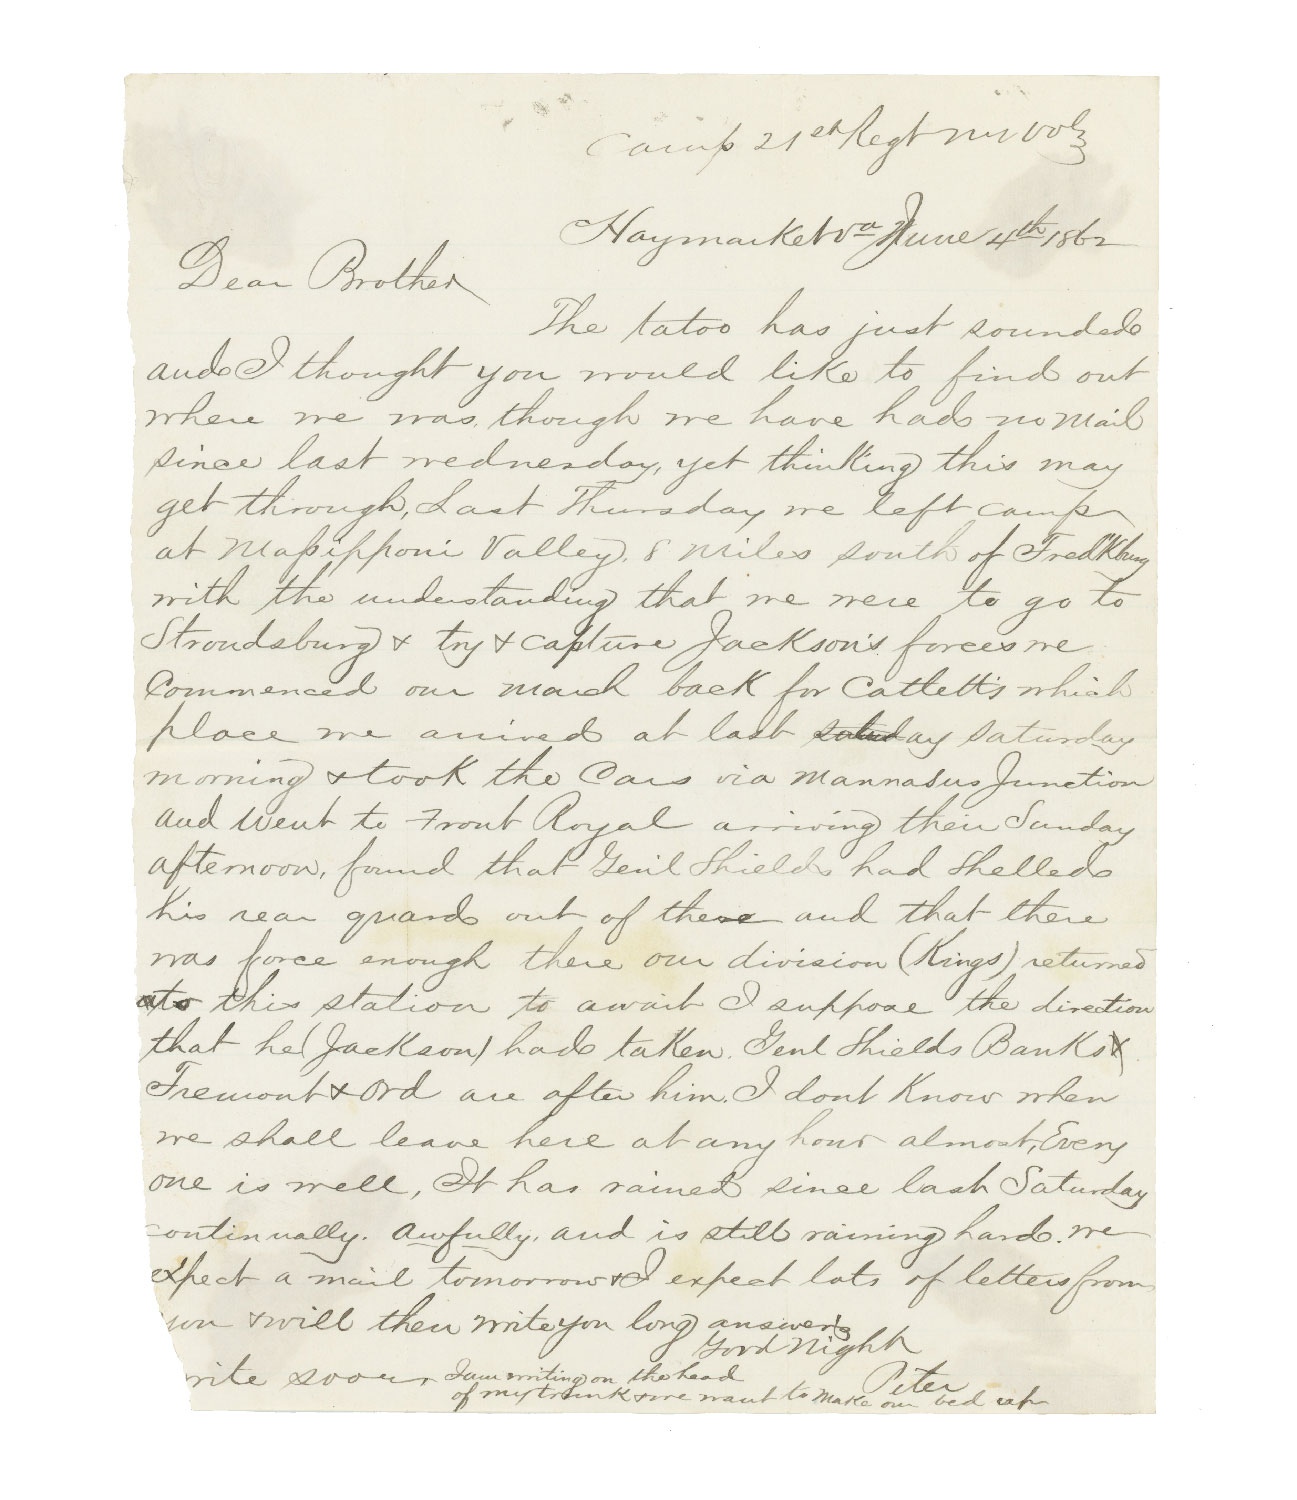 Camp 21st Regt NY Vols
Haymarket Va June 4th 1862
Dear Brother
The tatoo has just sounded
and I thought you would like to find out
where we was, though we have had no mail
since last wednesday, yet thinking this may
get through, Last Thursday we left camp
at Massipponi Valley, 8 miles south of Fred'Kburg
with the understanding that we were to go to
Stroudsburg & try & capture Jackson's forces we
Commenced our march back for Catlett's which
place we arrived at last saturday saturday
morning & took the Cars via Mannasus Junction
and went to Front Royal arriving their Sunday
afternoon, found that Genl Shields had Shelled
his rear guard out of there and that there
was force enough there our division (Kings) returned
to this station to await I suppose the direction
that he (Jackson) had taken. Genl Shields Banks &
Fremont & Ord are after him. I dont Know when
we shall leave here at any hour almost, Every
one is well, It has rained since last Saturday
continually. Awfully. and is still raining hard. we
expect a mail tomorrow & I expect lots of letters from
you & will then write you long answers
Good Night
write soon Peter
I am writing on the head
of my trunk & we want to make our bed up